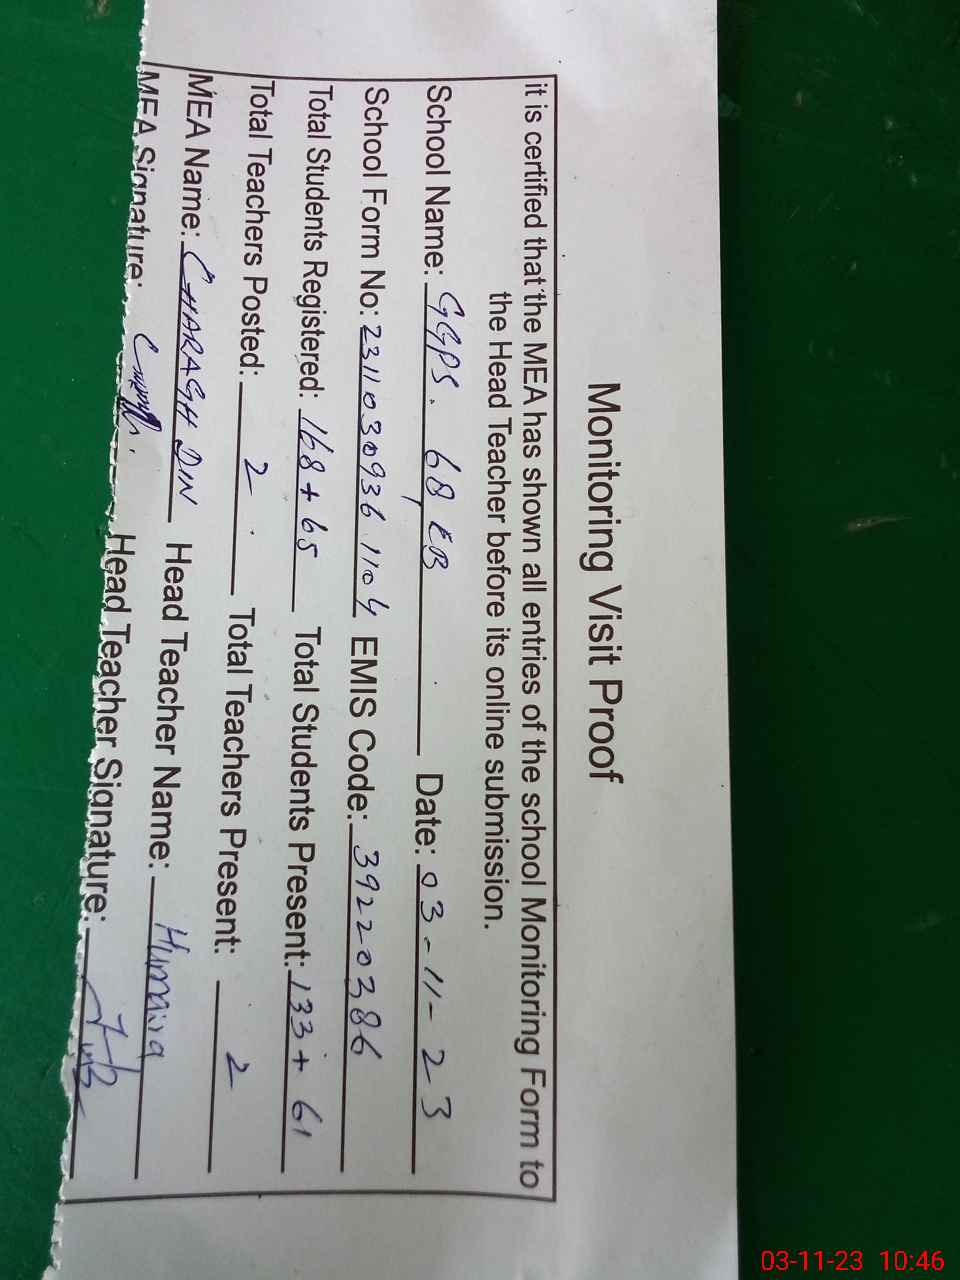 Monitoring Visit Proof
it is certified that the MEA has shown all entries of the school Monitoring Form to
the Head Teacher before its online submission.
School Name: GGPS. 68 EB Date: 03-11-23
School Form No: 23110309361104 EMIS Code: 39220386
Total Students Registered: 168+65 Total Students Present: 133+61
Total Teachers Posted: 2 Total Teachers Present: 2
MEA Name: CHARAGH DIN Head Teacher Name: Humaira
MEA Signature: Head Teacher Signature:
03-11-23 10:46